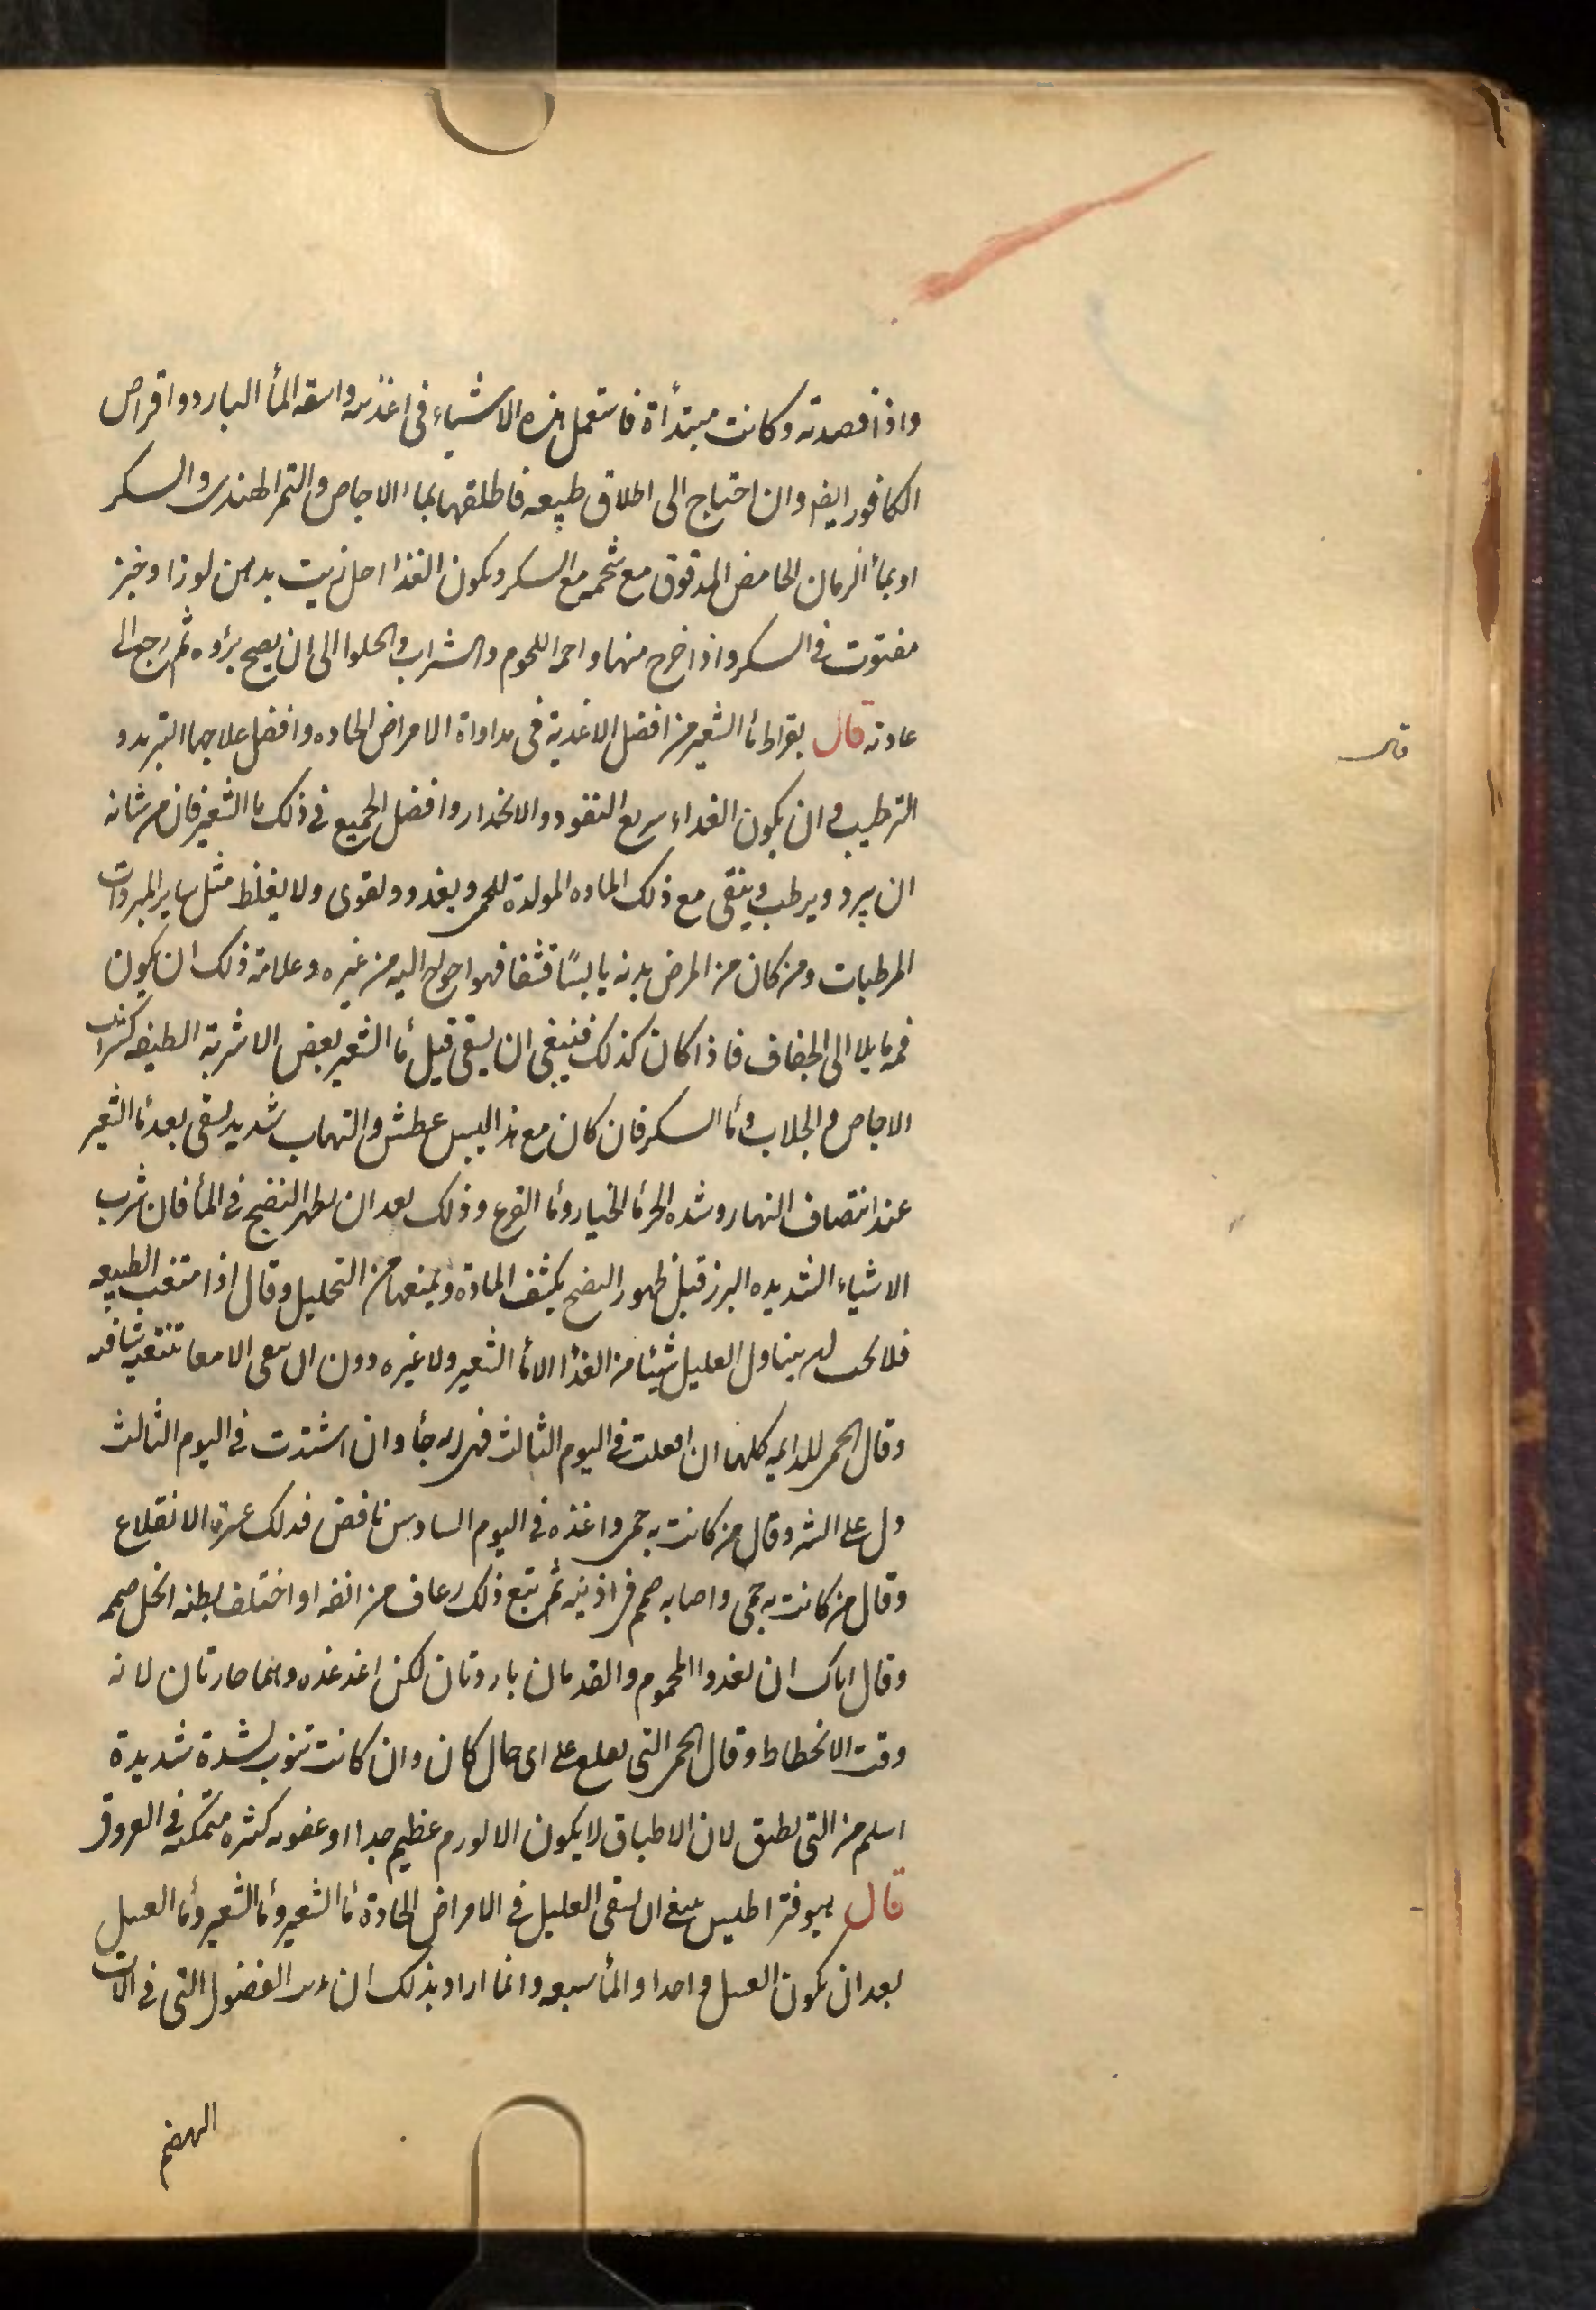 واذا فصدته وكانت مبتدأة فاستعمل هذه الاشياء فى اغذيته واسقه المأ البارد واقراص
الكافور ايضا وان احتاج الى اطلاق طبيعه فاطلقها بماء الاجاص والتمر الهندى والسكر
او بمأ الرمان الحامض المدقوق مع شحمه مع السكر ويكون الغذأ اجل زيت بدهن لوز او خبز
مفتوت فى السكر واذا خرج منها واحمه اللحوم والشراب والحلوا الى ان يصح برؤه ثم رجع الى
عادته قال بقراط مأ الشعير من افضل الاغدية فى مداواة الامراض الحاده وافضل علاجها التبريد و
الترطيب وان يكون الغداء سريع النفود والانحدار وافضل الجميع فى ذلك ما الشعير فان من شانه
ان يبرد ويرطب وينقى مع ذلك الماده المولدة للحمى ويغدو ويقوى ولا يغلظ مثل ساير المبردات
المرطبات ومن كان من المرض بدنه يابسًا قشفا فهو احوج اليه من غيره وعلامة ذلك ان يكون
فمه مايلا الى الجفاف فاذا كان كذلك فينبغى ان يسقى قبل مأ الشعير بعض الاشربة الطيفه كشراب
الاجاص والجلاب ومأ السكر فان كان مع هذا اليبس عطش والتهاب شديد يسقى بعد مأ الشعير
عند انتصاف النهار وشده الحر مأ الخيار ومأ القرع وذلك بعد ان يظهر النضج فى المأ فان شرب
الاشياء الشديده البرد قبل ظهور النضج يكثف المادة ويمنعها من التحليل وقال اذا امتنعت الطبيعه
فلا يجب ان يتناول العليل شيئا من الغذأ الا مأ الشعير ولا غيره دون ان ينقى الامعا
وقال الحمى الدايمه كلها ان اقلعت فى اليوم الثالث فهى وان اشتدت فى اليوم الثالث
دل على الشر وقال من كانت به حمى واخذه فى اليوم السادس نافض فدلك عسرة الانقلاع
وقال من كانت به حمى واصابه صمم فى اذنيه ثم تبع ذلك رعاف من انفه او اختلف بطنه انحل صممه
وقال اياك ان تغدوا المحموم والقدمان باردتان لكن اغد غده وهما حارتان لانه
وقت الانحطاط وقال الحمى التى تقلع على اى حال كان وان كانت تنوب لشدة شديدة
اسلم من التى تطبق لان الاطباق لا يكون الا لورم عظيم جدا او عفونه كثره متمكنه فى العروق
قال يبوقراطيس ينبغى ان يسقى العليل فى الامراض الحادة مأ الشعير ومأ الشعير ومأ العسل
بعد ان يكون العسل واحدا والمأ سبعه وانما اراد بذلك ان الفضول التى فى الات
الهضم
قال